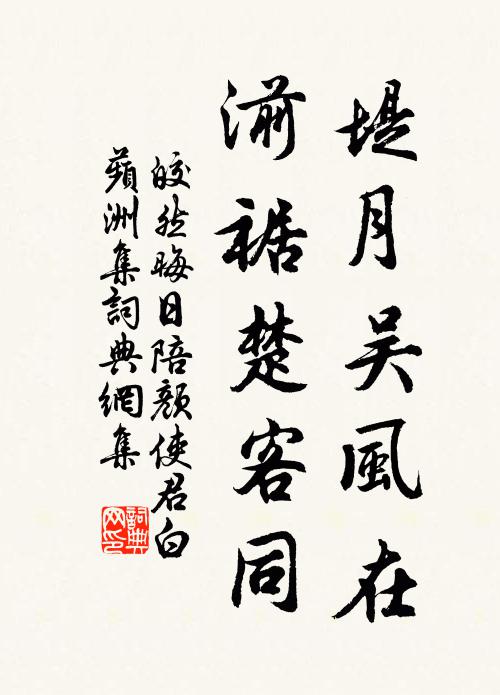 堤月吳風在
湔裾楚客同
皎然晦日陪顏使君白
蘋洲集詞典網集
詞典
网印